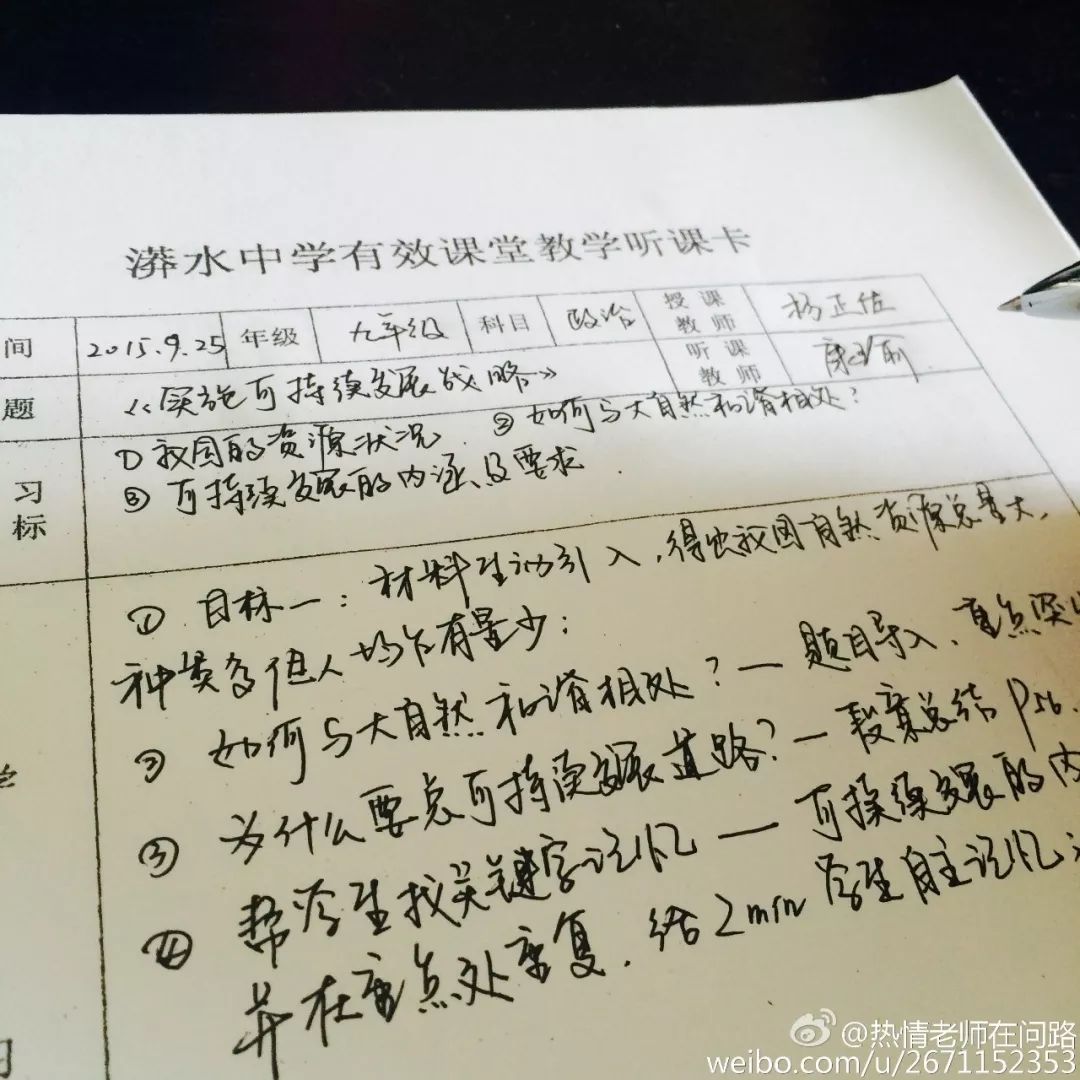 漭水中学有效课堂教学听课卡
间 2015.9.25 年级 九年级 科目 政治 授课教师 杨正佐
听课教师
题 《实施可持续发展战略》
习标 ①我国的资源状况 ②如何与大自然和谐相处?
③可持续发展的内涵及要求.
① 目标一:材料生动引入,得出我国自然资源总量大,
种类多但人均占有量少;
② 如何与大自然和谐相处?—题目导入,重点突
③ 为什么要走可持续发展道路?—教案总结 P56.
④ 帮学生找关键字记忆—可持续发展的内
并在重点处重复.给2min学生自主记忆
习
@热情老师在问路
weibo.com/u/2671152353